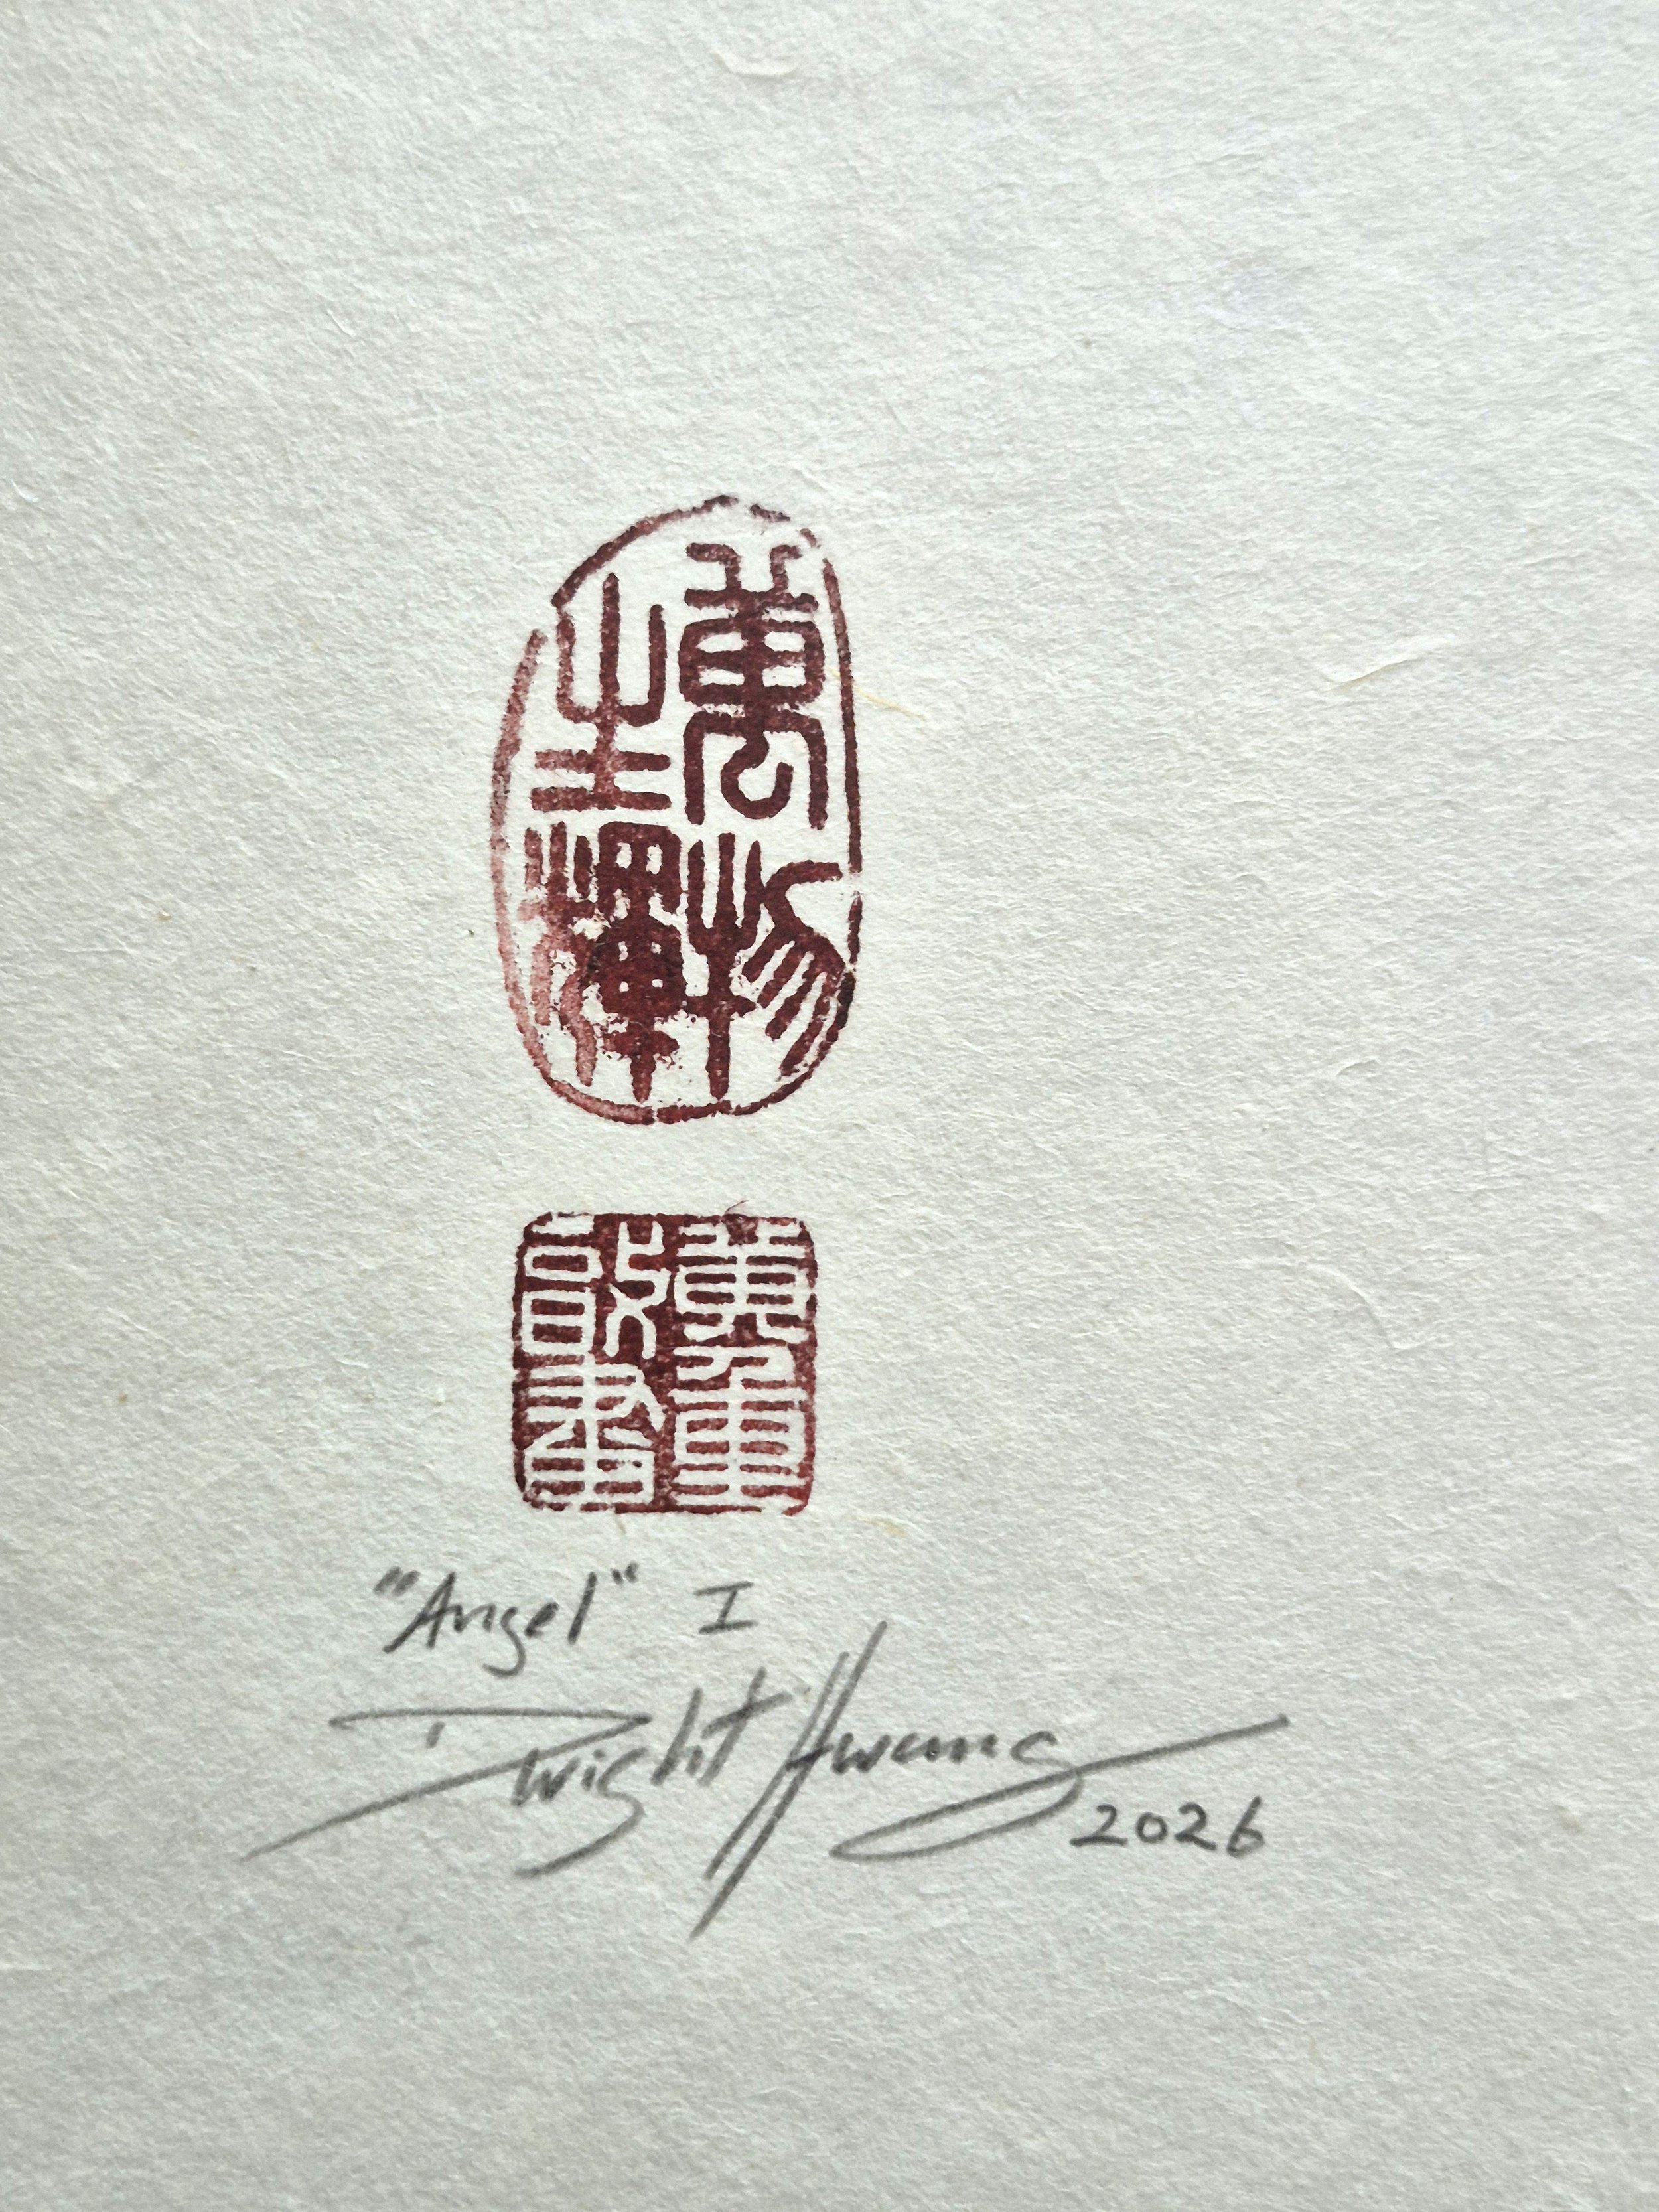 萬物
生輝
"Angel" I
Dwight Hwang
2026